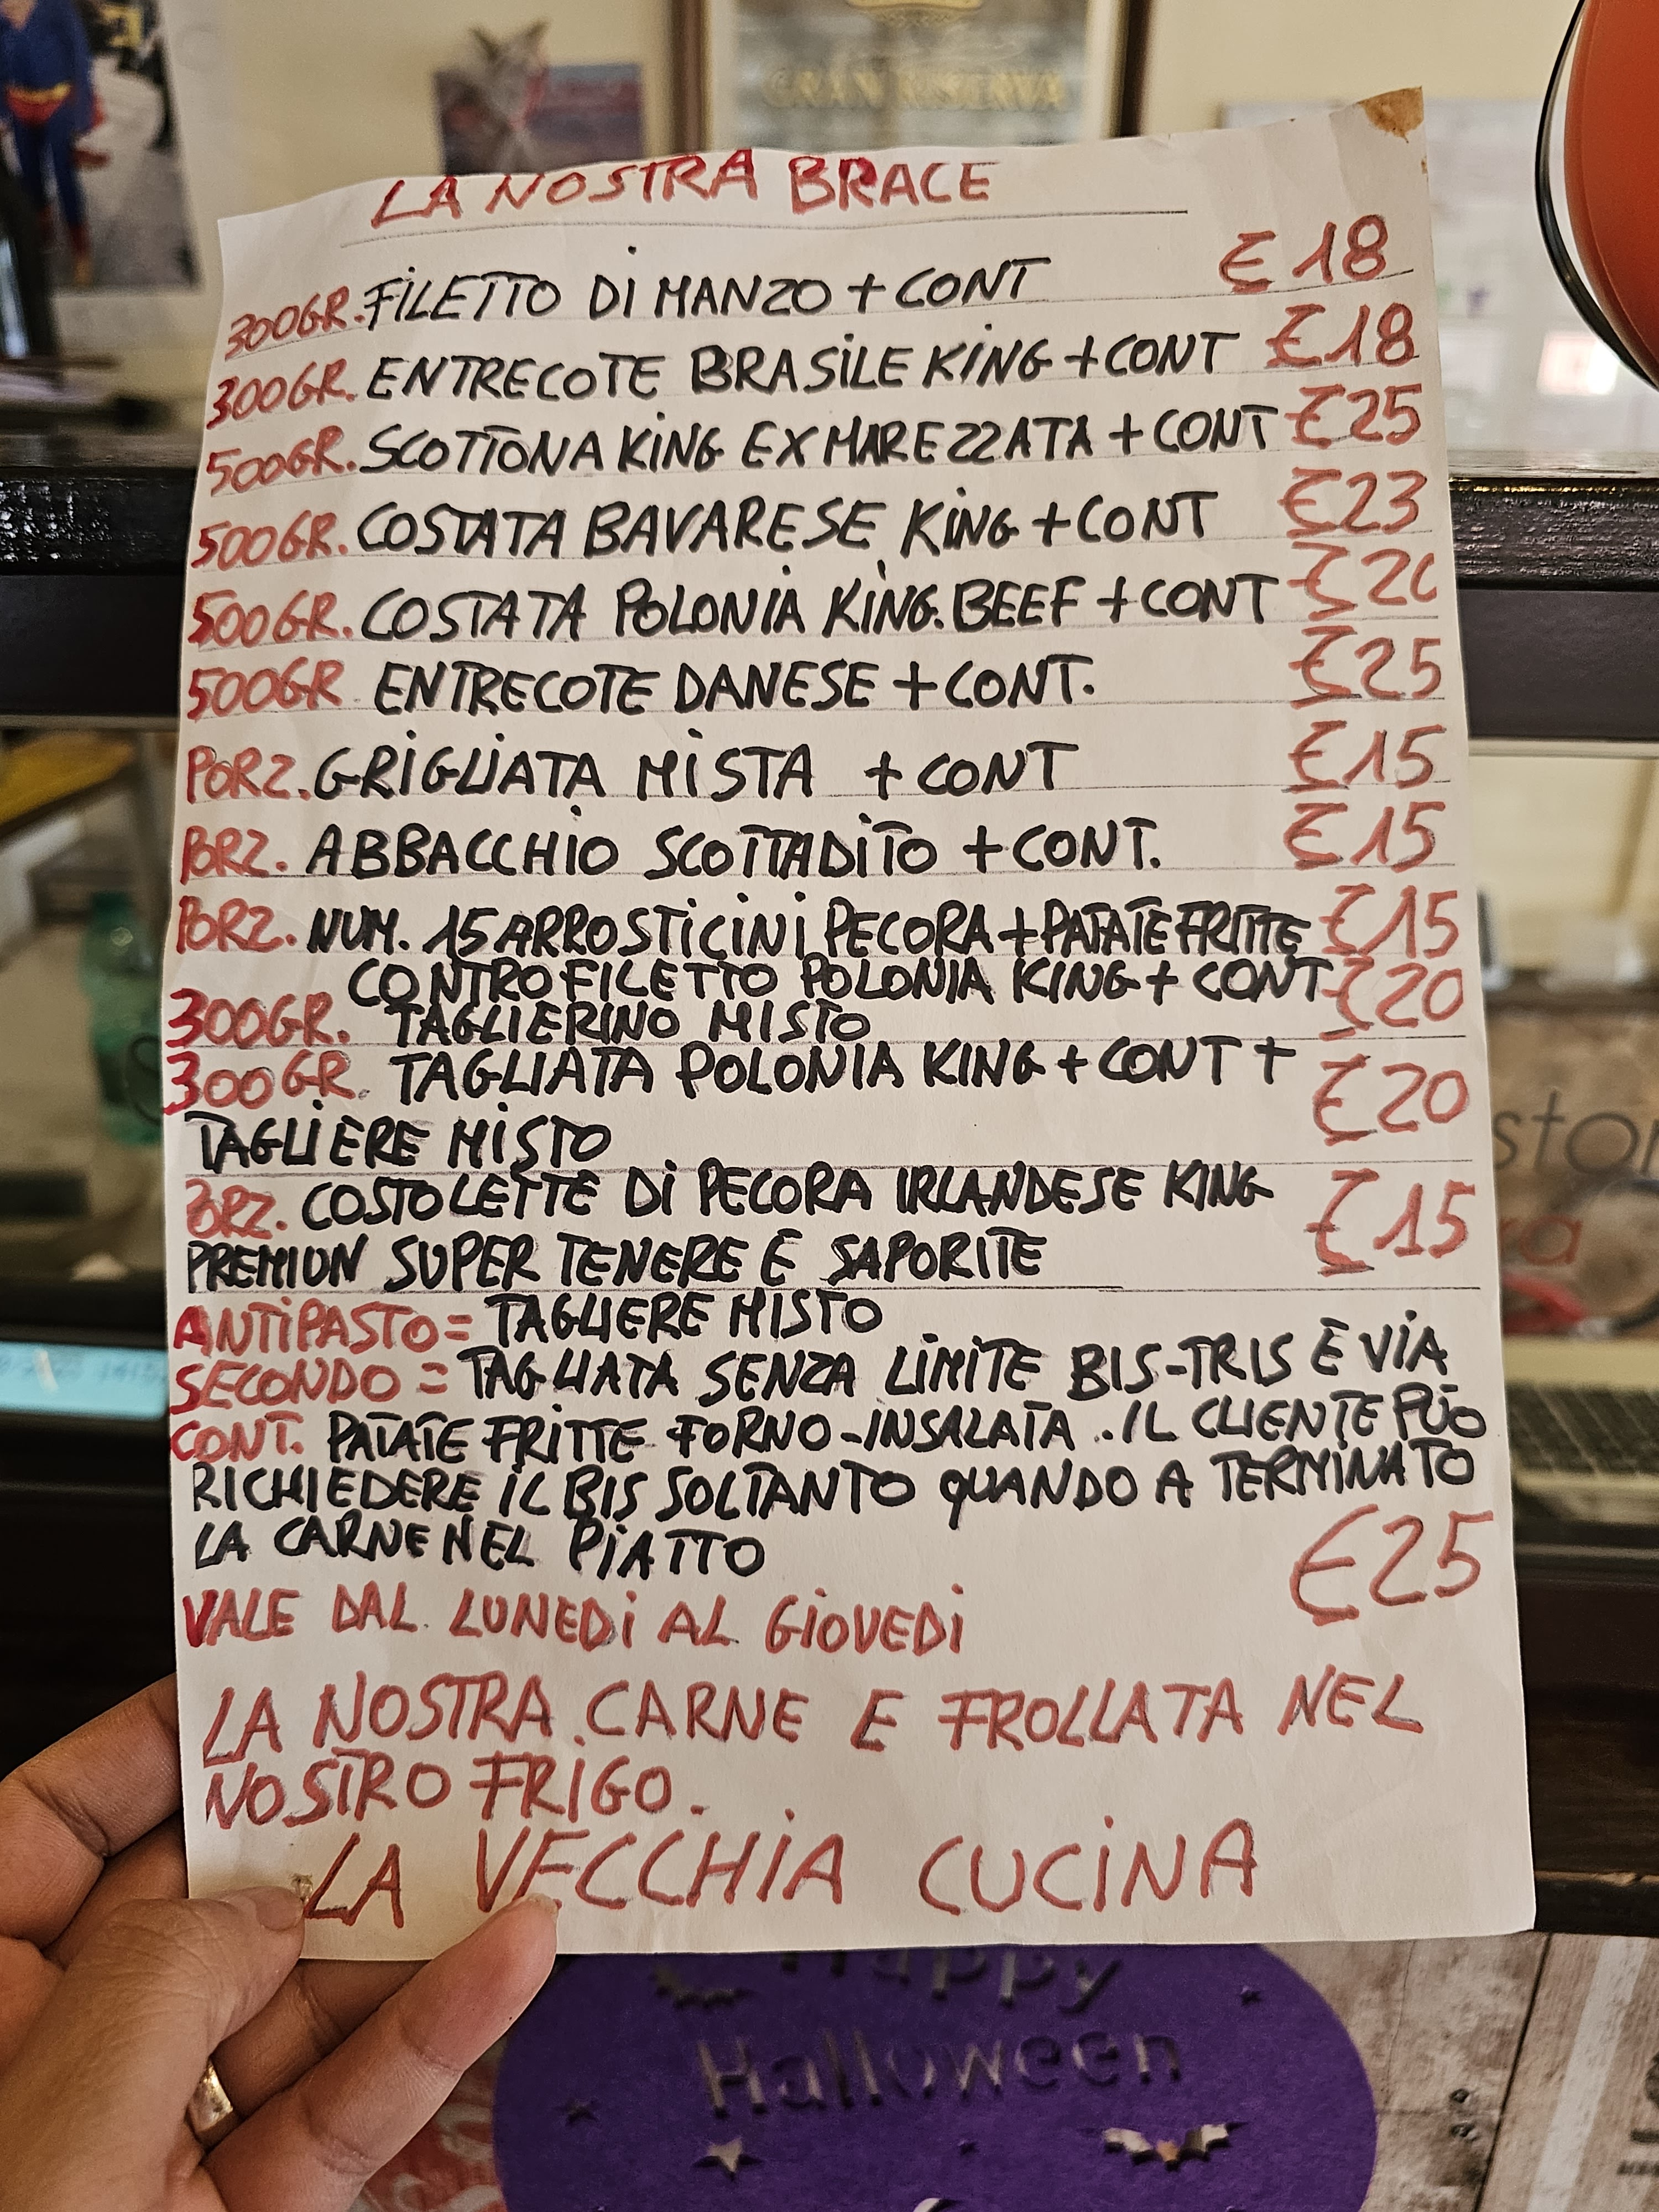 GRAN RISERVA
LA NOSTRA BRACE
300GR. FILETTO DI MANZO + CONT €18
300GR. ENTRECOTE BRASILE KING + CONT €18
500GR. SCOTTONA KING EX MAREZZATA + CONT €25
500GR. COSTATA BAVARESE KING + CONT €23
500GR. COSTATA POLONIA KING. BEEF + CONT €20
500GR ENTRECOTE DANESE + CONT. €25
PORZ. GRIGLIATA MISTA + CONT €15
PORZ. ABBACCHIO SCOTTADITO + CONT. €15
PORZ. NUM. 15 ARROSTICINI PECORA + PATATE FRITTE €15
CONTROFILETTO POLONIA KING + CONT €20
300GR. TAGLIERINO MISTO
300GR. TAGLIATA POLONIA KING + CONT + €20
TAGLIERE MISTO
PORZ. COSTOLETTE DI PECORA IRLANDESE KING €15
PREMIUN SUPER TENERE E SAPORITE
ANTIPASTO = TAGLIERE MISTO
SECONDO = TAGLIATA SENZA LIMITE BIS-TRIS E VIA
CONT. PATATE FRITTE FORNO-INSALATA. IL CLIENTE PUÒ
RICHIEDERE IL BIS SOLTANTO QUANDO A TERMINATO
LA CARNE NEL PIATTO €25
VALE DAL LUNEDI AL GIOVEDI
LA NOSTRA CARNE E FROLLATA NEL
NOSTRO FRIGO.
LA VECCHIA CUCINA
Happy
Halloween